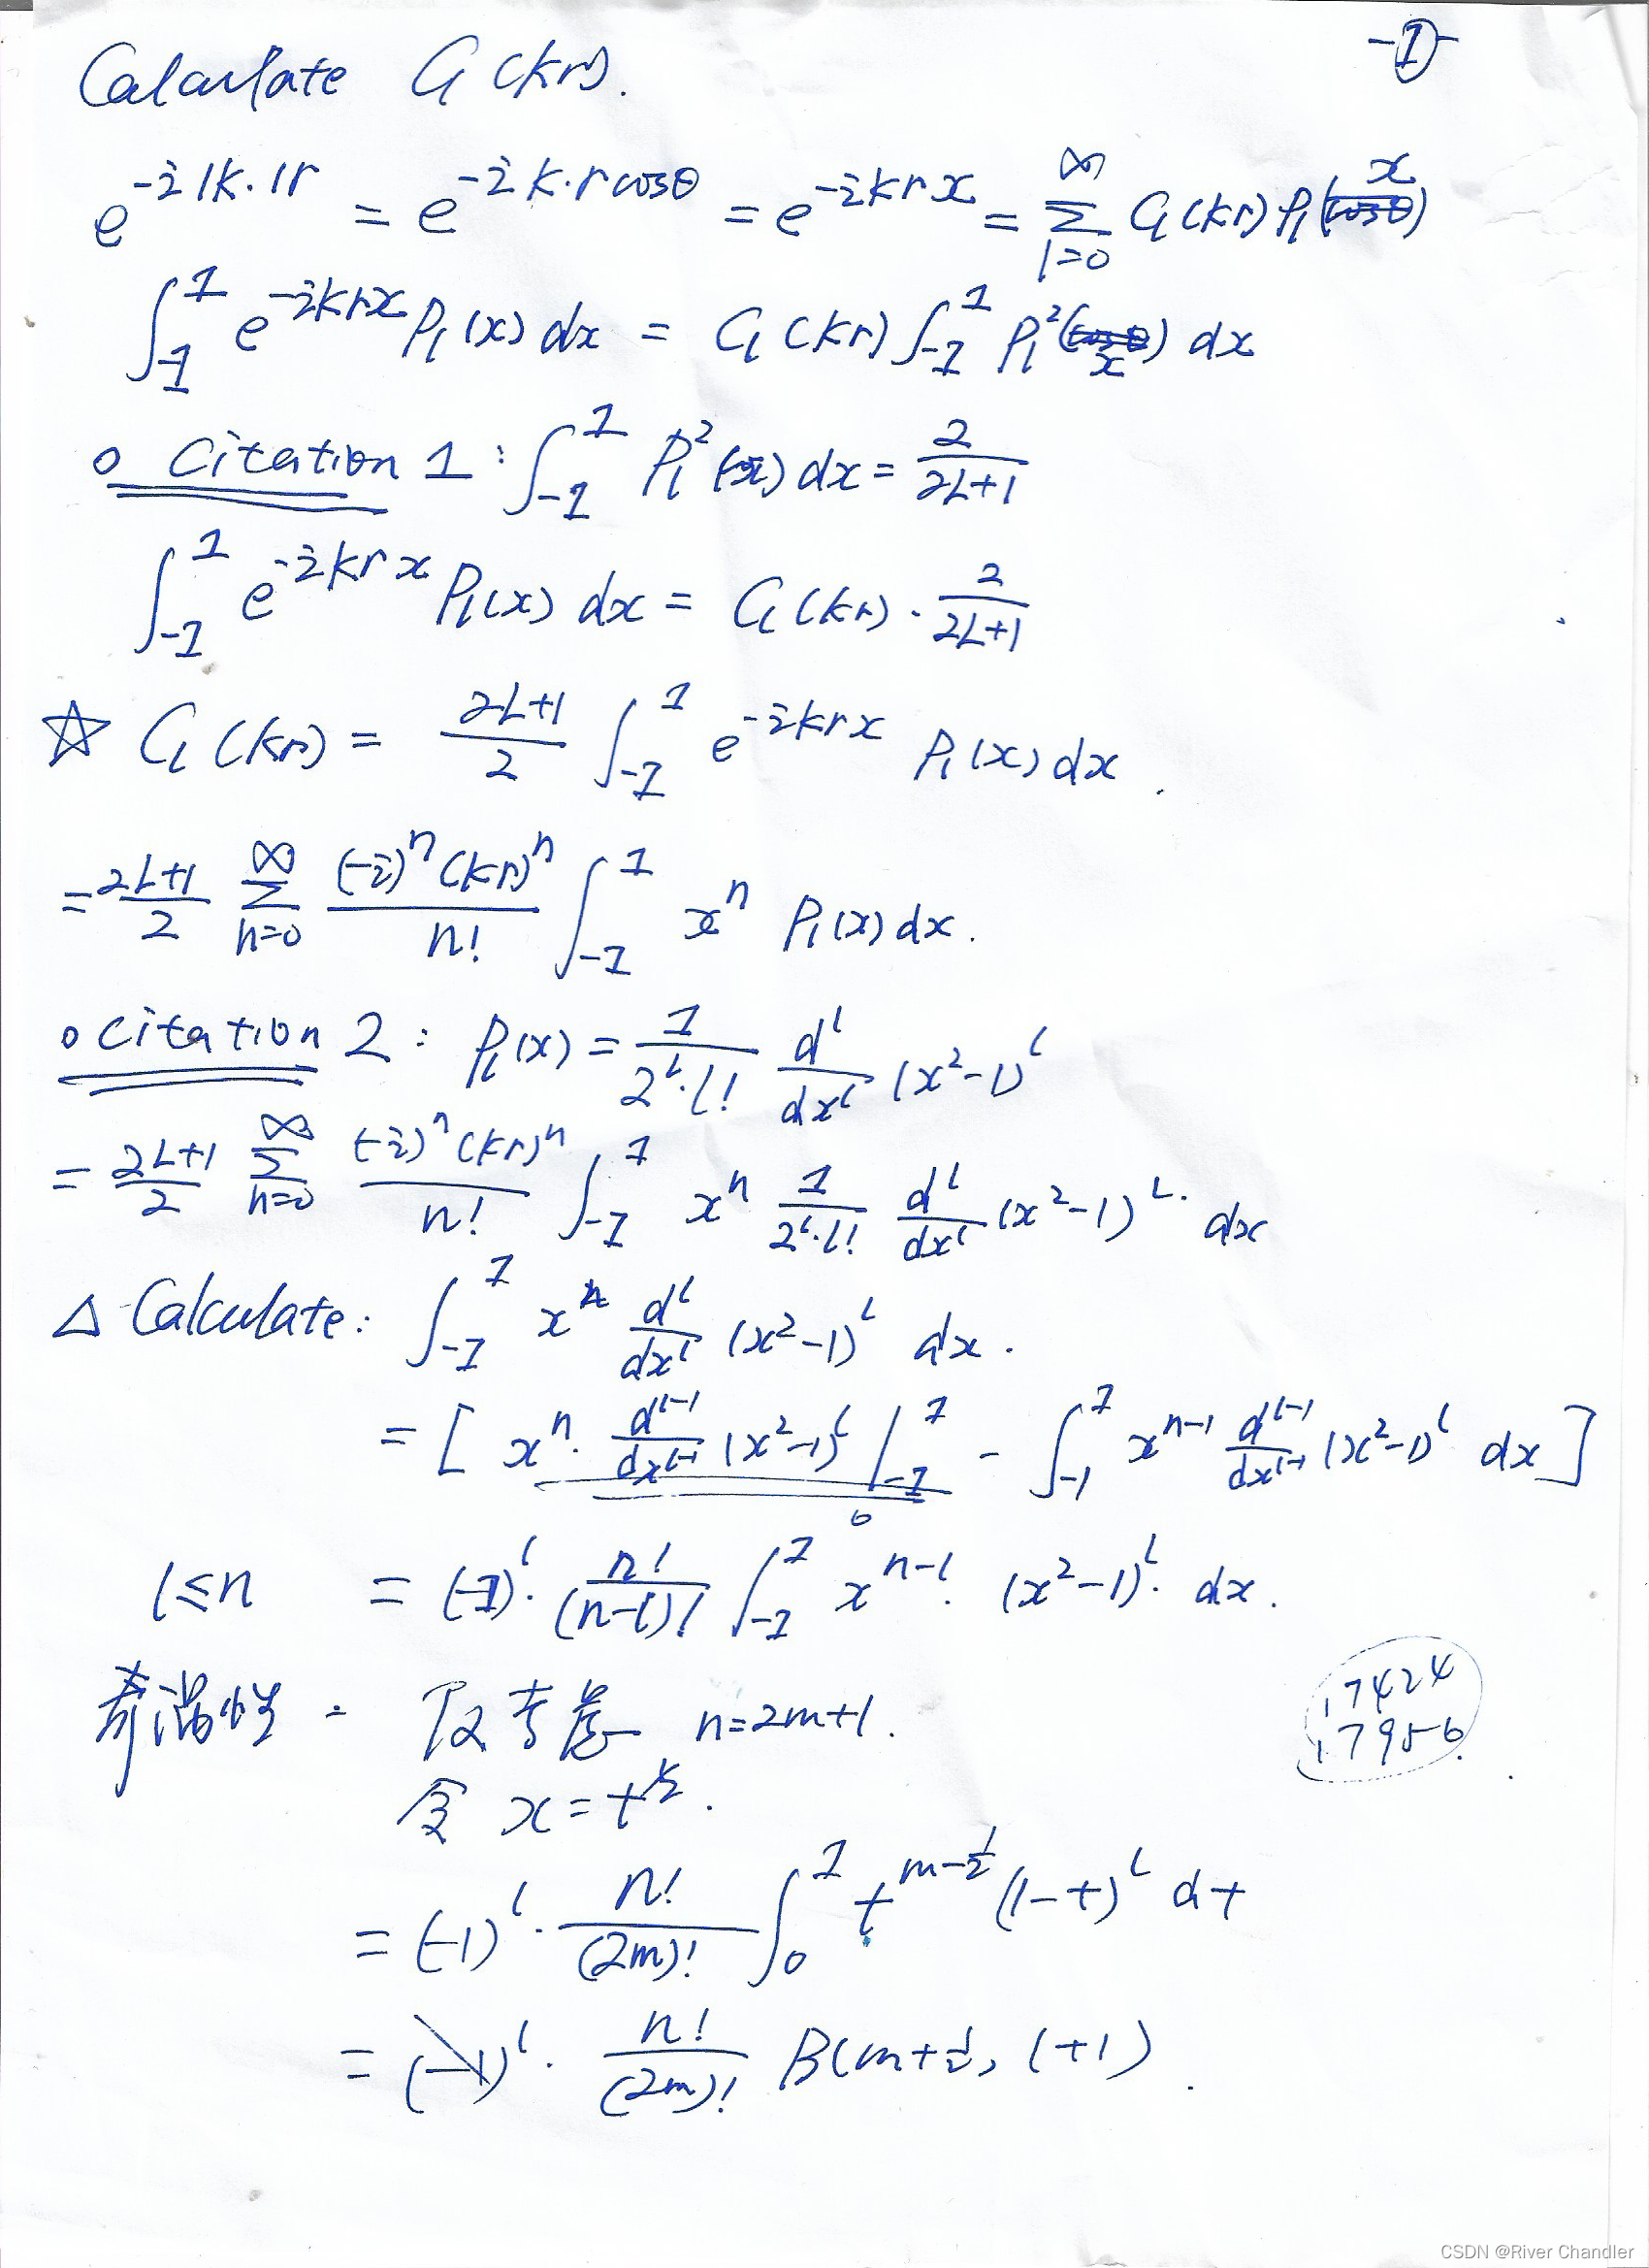 -①-
Calculate Cl(kr).
e^{-ik·r} = e^{-ik·rcosθ} = e^{-ikrx} = ∑_{l=0}^{∞} Cl(kr) Pl(x)
∫_{-1}^{1} e^{-ikrx} Pl(x) dx = Cl(kr) ∫_{-1}^{1} Pl²(x) dx
o Citation 1: ∫_{-1}^{1} Pl²(x) dx = 2/(2L+1)
∫_{-1}^{1} e^{-ikrx} Pl(x) dx = Cl(kr) · 2/(2L+1)
☆ Cl(kr) = (2L+1)/2 ∫_{-1}^{1} e^{-ikrx} Pl(x) dx.
= (2L+1)/2 ∑_{n=0}^{∞} (-i)^n (kr)^n / n! ∫_{-1}^{1} x^n Pl(x) dx.
o Citation 2: Pl(x) = 1/(2^L·l!) d^l/dx^l (x²-1)^l
= (2L+1)/2 ∑_{n=0}^{∞} (-i)^n (kr)^n / n! ∫_{-1}^{1} x^n 1/(2^l·l!) d^l/dx^l (x²-1)^L · dx
△ Calculate: ∫_{-1}^{1} x^n d^l/dx^l (x²-1)^l dx.
= [ x^n · d^{l-1}/dx^{l-1} (x²-1)^l |_{-1}^{1} - ∫_{-1}^{1} x^{n-1} d^{l-1}/dx^{l-1} (x²-1)^l dx ]
0
l≤n = (-1)^l · n!/(n-l)! ∫_{-1}^{1} x^{n-l} · (x²-1)^l · dx.
奇偶性 n=2m+1.
令 x=t^{1/2}.
17424
17956
= (-1)^l · n!/(2m)! ∫_0^1 t^{m-1/2} (1-t)^l dt
= (-1)^l · n!/(2m)! B(m+1/2, l+1).
CSDN @River Chandler